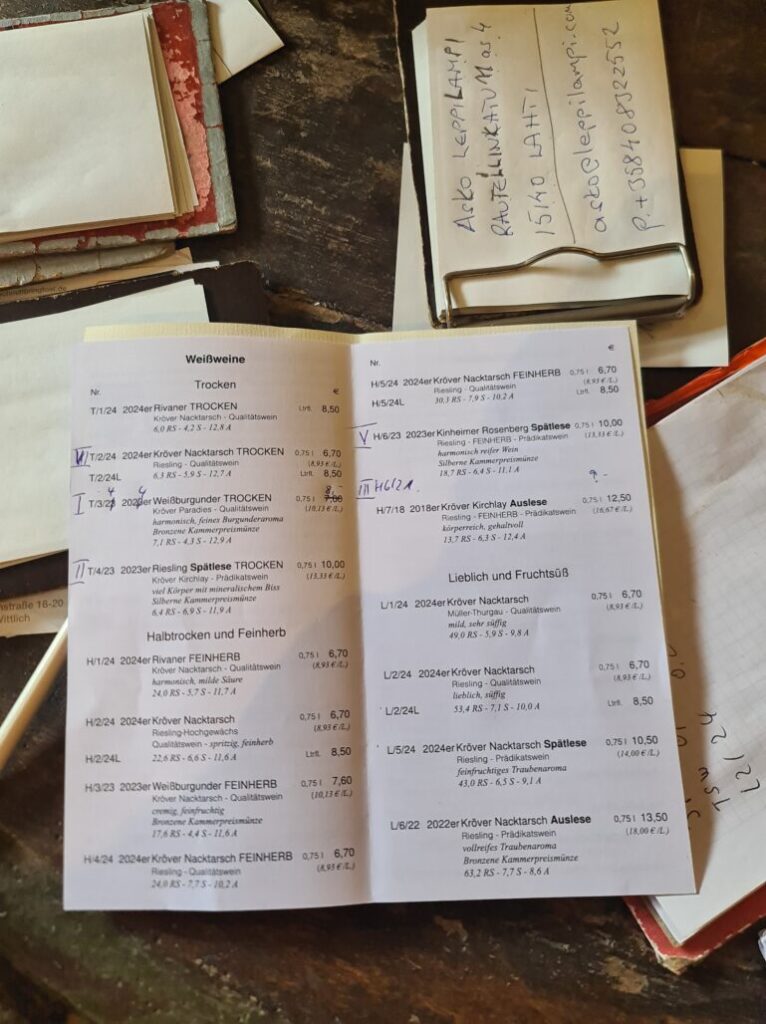 ASKO LEPPILAMPI
RAUTELLINKATU 11 as. 4
15140 LAHTI
asko@leppilampi.com
p. +358408322552
Weißweine
Trocken
Nr. €
T/1/24 2024er Rivaner TROCKEN Ltrfl. 8,50
Kröver Nacktarsch - Qualitätswein
6,0 RS - 4,2 S - 12,8 A
T/2/24 2024er Kröver Nacktarsch TROCKEN 0,75 l 6,70
Riesling - Qualitätswein (8,93 €/L.)
T/2/24L 6,3 RS - 5,9 S - 12,7 A Ltrfl. 8,50
4 4 8,-
I T/3/23 2023er Weißburgunder TROCKEN 0,75 l 7,60
Kröver Paradies - Qualitätswein (10,13 €/L.)
harmonisch, feines Burgunderaroma
Bronzene Kammerpreismünze
7,1 RS - 4,3 S - 12,9 A
II T/4/23 2023er Riesling Spätlese TROCKEN 0,75 l 10,00
Kröver Kirchlay - Prädikatswein (13,33 €/L.)
viel Körper mit mineralischem Biss
Silberne Kammerpreismünze
6,4 RS - 6,9 S - 11,9 A
Halbtrocken und Feinherb
H/1/24 2024er Rivaner FEINHERB 0,75 l 6,70
Kröver Nacktarsch - Qualitätswein (8,93 €/L.)
harmonisch, milde Säure
24,0 RS - 5,7 S - 11,7 A
H/2/24 2024er Kröver Nacktarsch 0,75 l 6,70
Riesling-Hochgewächs (8,93 €/L.)
Qualitätswein - spritzig, feinherb
H/2/24L 22,6 RS - 6,6 S - 11,6 A Ltrfl. 8,50
H/3/23 2023er Weißburgunder FEINHERB 0,75 l 7,60
Kröver Nacktarsch - Qualitätswein (10,13 €/L.)
cremig, feinfruchtig
Bronzene Kammerpreismünze
17,6 RS - 4,4 S - 11,6 A
H/4/24 2024er Kröver Nacktarsch FEINHERB 0,75 l 6,70
Riesling - Qualitätswein (8,93 €/L.)
24,0 RS - 7,7 S - 10,2 A
Nr. €
H/5/24 2024er Kröver Nacktarsch FEINHERB 0,75 l 6,70
Riesling - Qualitätswein (8,93 €/L.)
H/5/24L 30,3 RS - 7,9 S - 10,2 A Ltrfl. 8,50
V H/6/23 2023er Kinheimer Rosenberg Spätlese 0,75 l 10,00
Riesling - FEINHERB - Prädikatswein (13,33 €/L.)
harmonisch reifer Wein
Silberne Kammerpreismünze
18,7 RS - 6,4 S - 11,1 A
III H6/21 9,-
H/7/18 2018er Kröver Kirchlay Auslese 0,75 l 12,50
Riesling - FEINHERB - Prädikatswein (16,67 €/L.)
körperreich, gehaltvoll
13,7 RS - 6,3 S - 12,4 A
Lieblich und Fruchtsüß
L/1/24 2024er Kröver Nacktarsch 0,75 l 6,70
Müller-Thurgau - Qualitätswein (8,93 €/L.)
mild, sehr süffig
49,0 RS - 5,9 S - 9,8 A
L/2/24 2024er Kröver Nacktarsch 0,75 l 6,70
Riesling - Qualitätswein (8,93 €/L.)
lieblich, süffig
L/2/24L 53,4 RS - 7,1 S - 10,0 A Ltrfl. 8,50
L/5/24 2024er Kröver Nacktarsch Spätlese 0,75 l 10,50
Riesling - Prädikatswein (14,00 €/L.)
feinfruchtiges Traubenaroma
43,0 RS - 6,5 S - 9,1 A
L/6/22 2022er Kröver Nacktarsch Auslese 0,75 l 13,50
Riesling - Prädikatswein (18,00 €/L.)
vollreifes Traubenaroma
Bronzene Kammerpreismünze
63,2 RS - 7,7 S - 8,6 A
nstraße 16-20
Wittlich